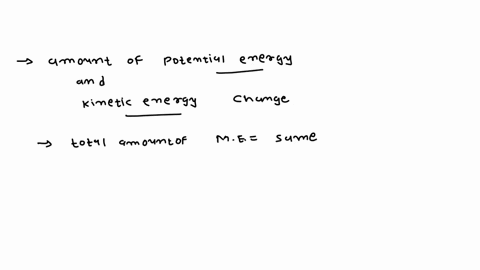 → amount of potential energy
and
kinetic energy change
→ total amount of M.E = same